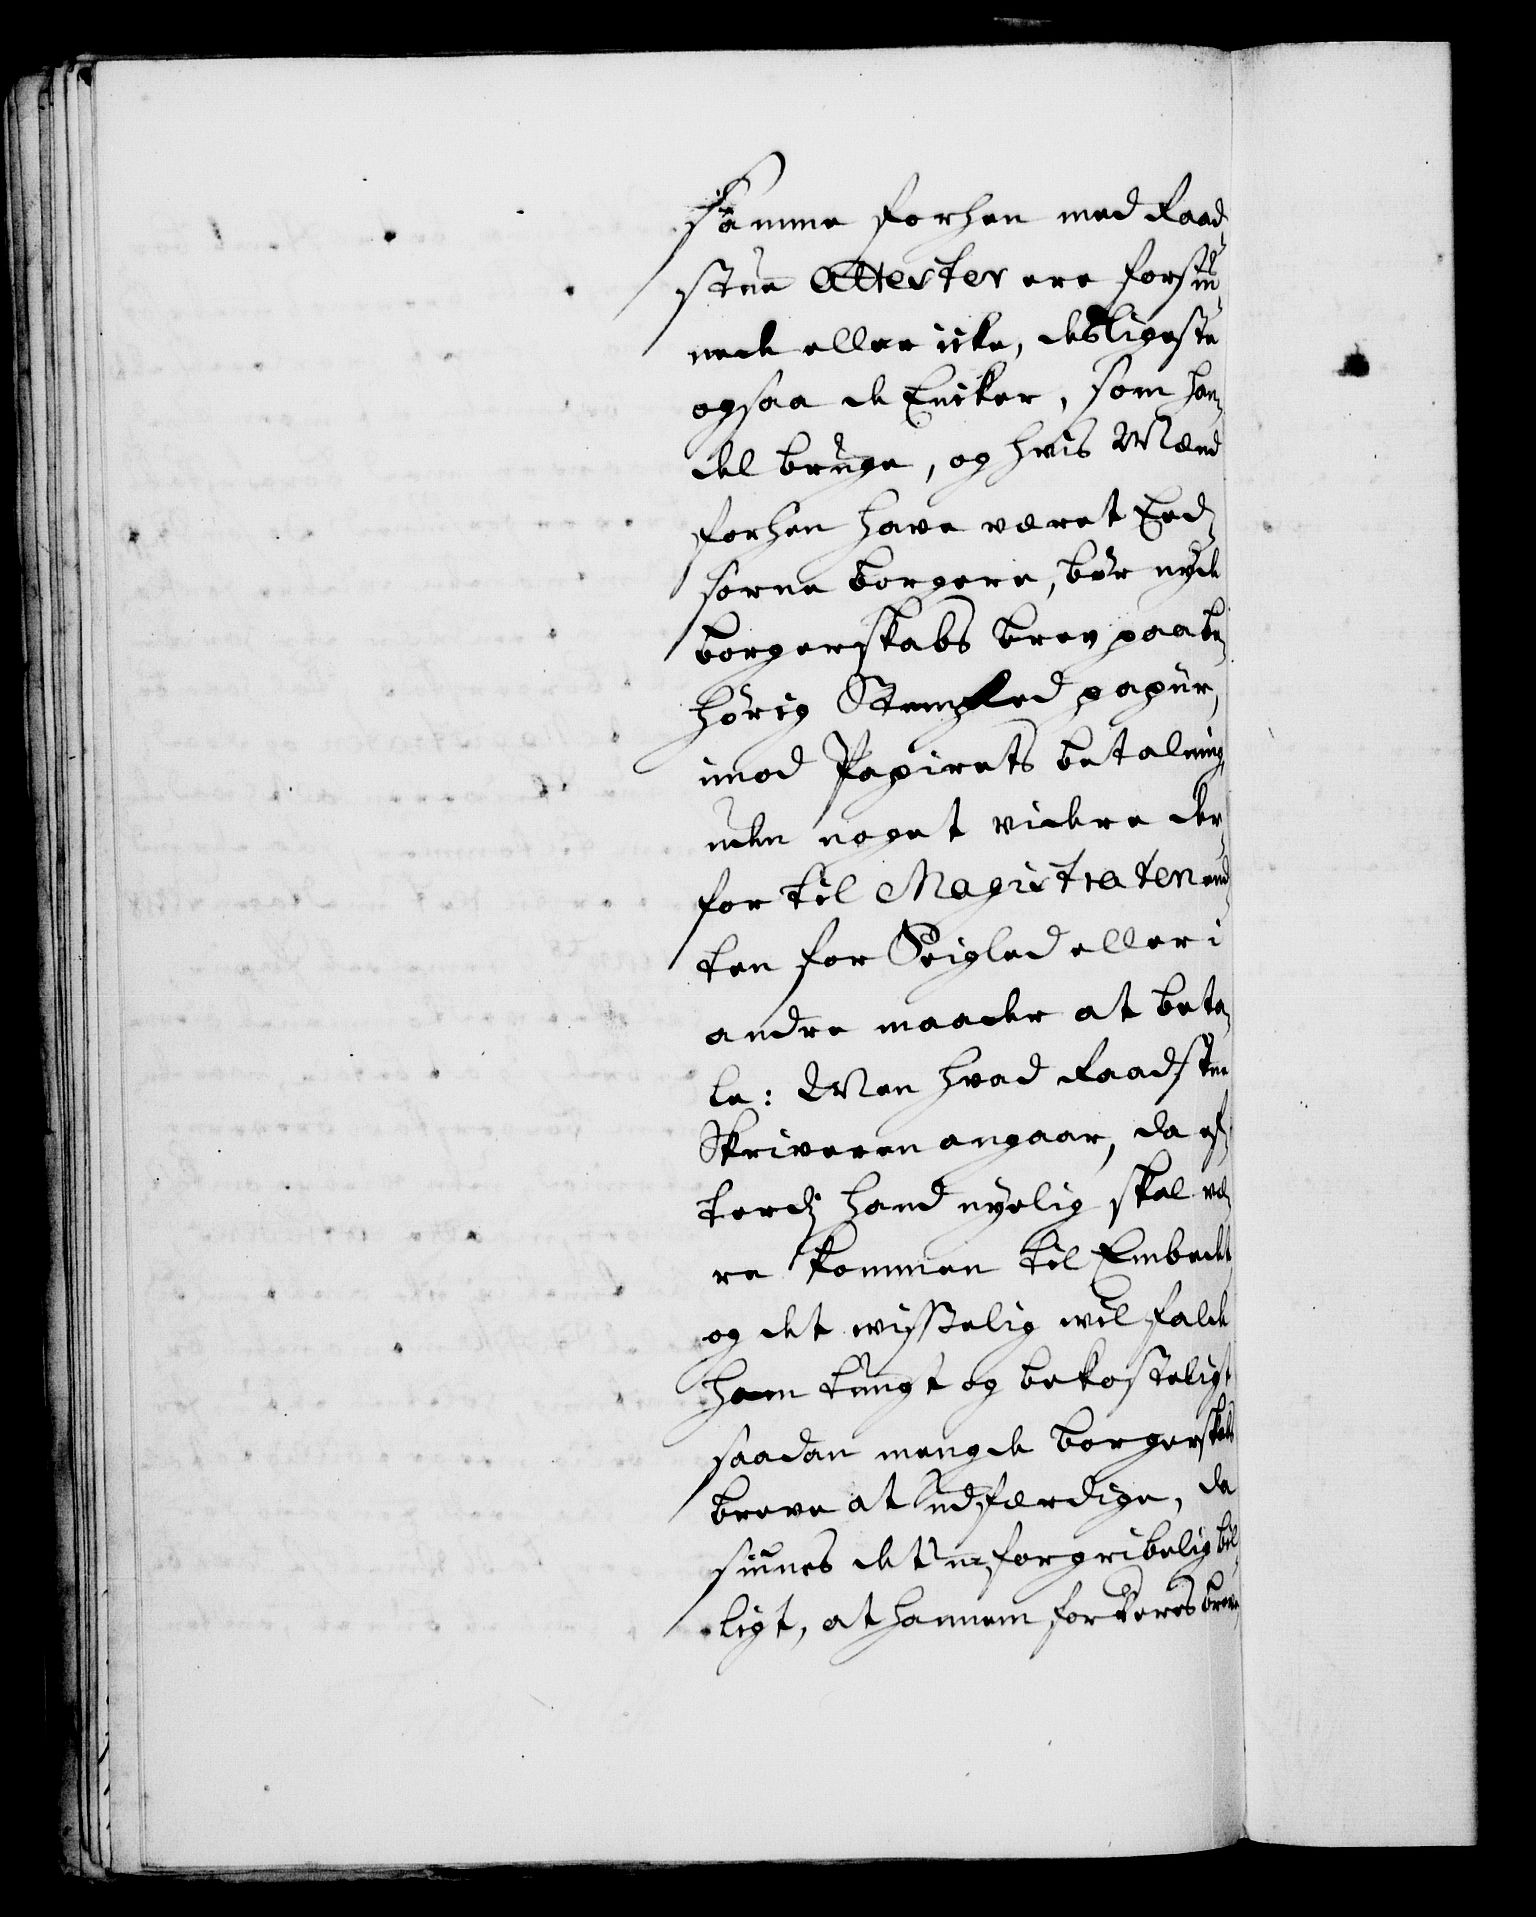 samme forhen med Raad-
stue Attester ere forsiu-
nede eller icke, desligeste
ogsaa de Encker, som han-
del bruge, og hvis Mænd
forhen have været Eed-
sorne borgere, bør nyde
borgerskabs brev paa be-
hörig Stempled papiir,
imod Papirets betalning
uden noget videre der-
for til Magistraten end-
ten for Seigled eller i
andre maader at beta-
le: Men hvad Raadstue
Skriveren angaar, da ef-
terdj hand nyelig skal væ-
re kommen til Embedet
og det wisselig wil falde
ham tungt og bekosteligt
saadan mengde borgerskabs
breve at udfærdige, da
siunes det uforgribelig bil-
ligt, at hannem for deres breve